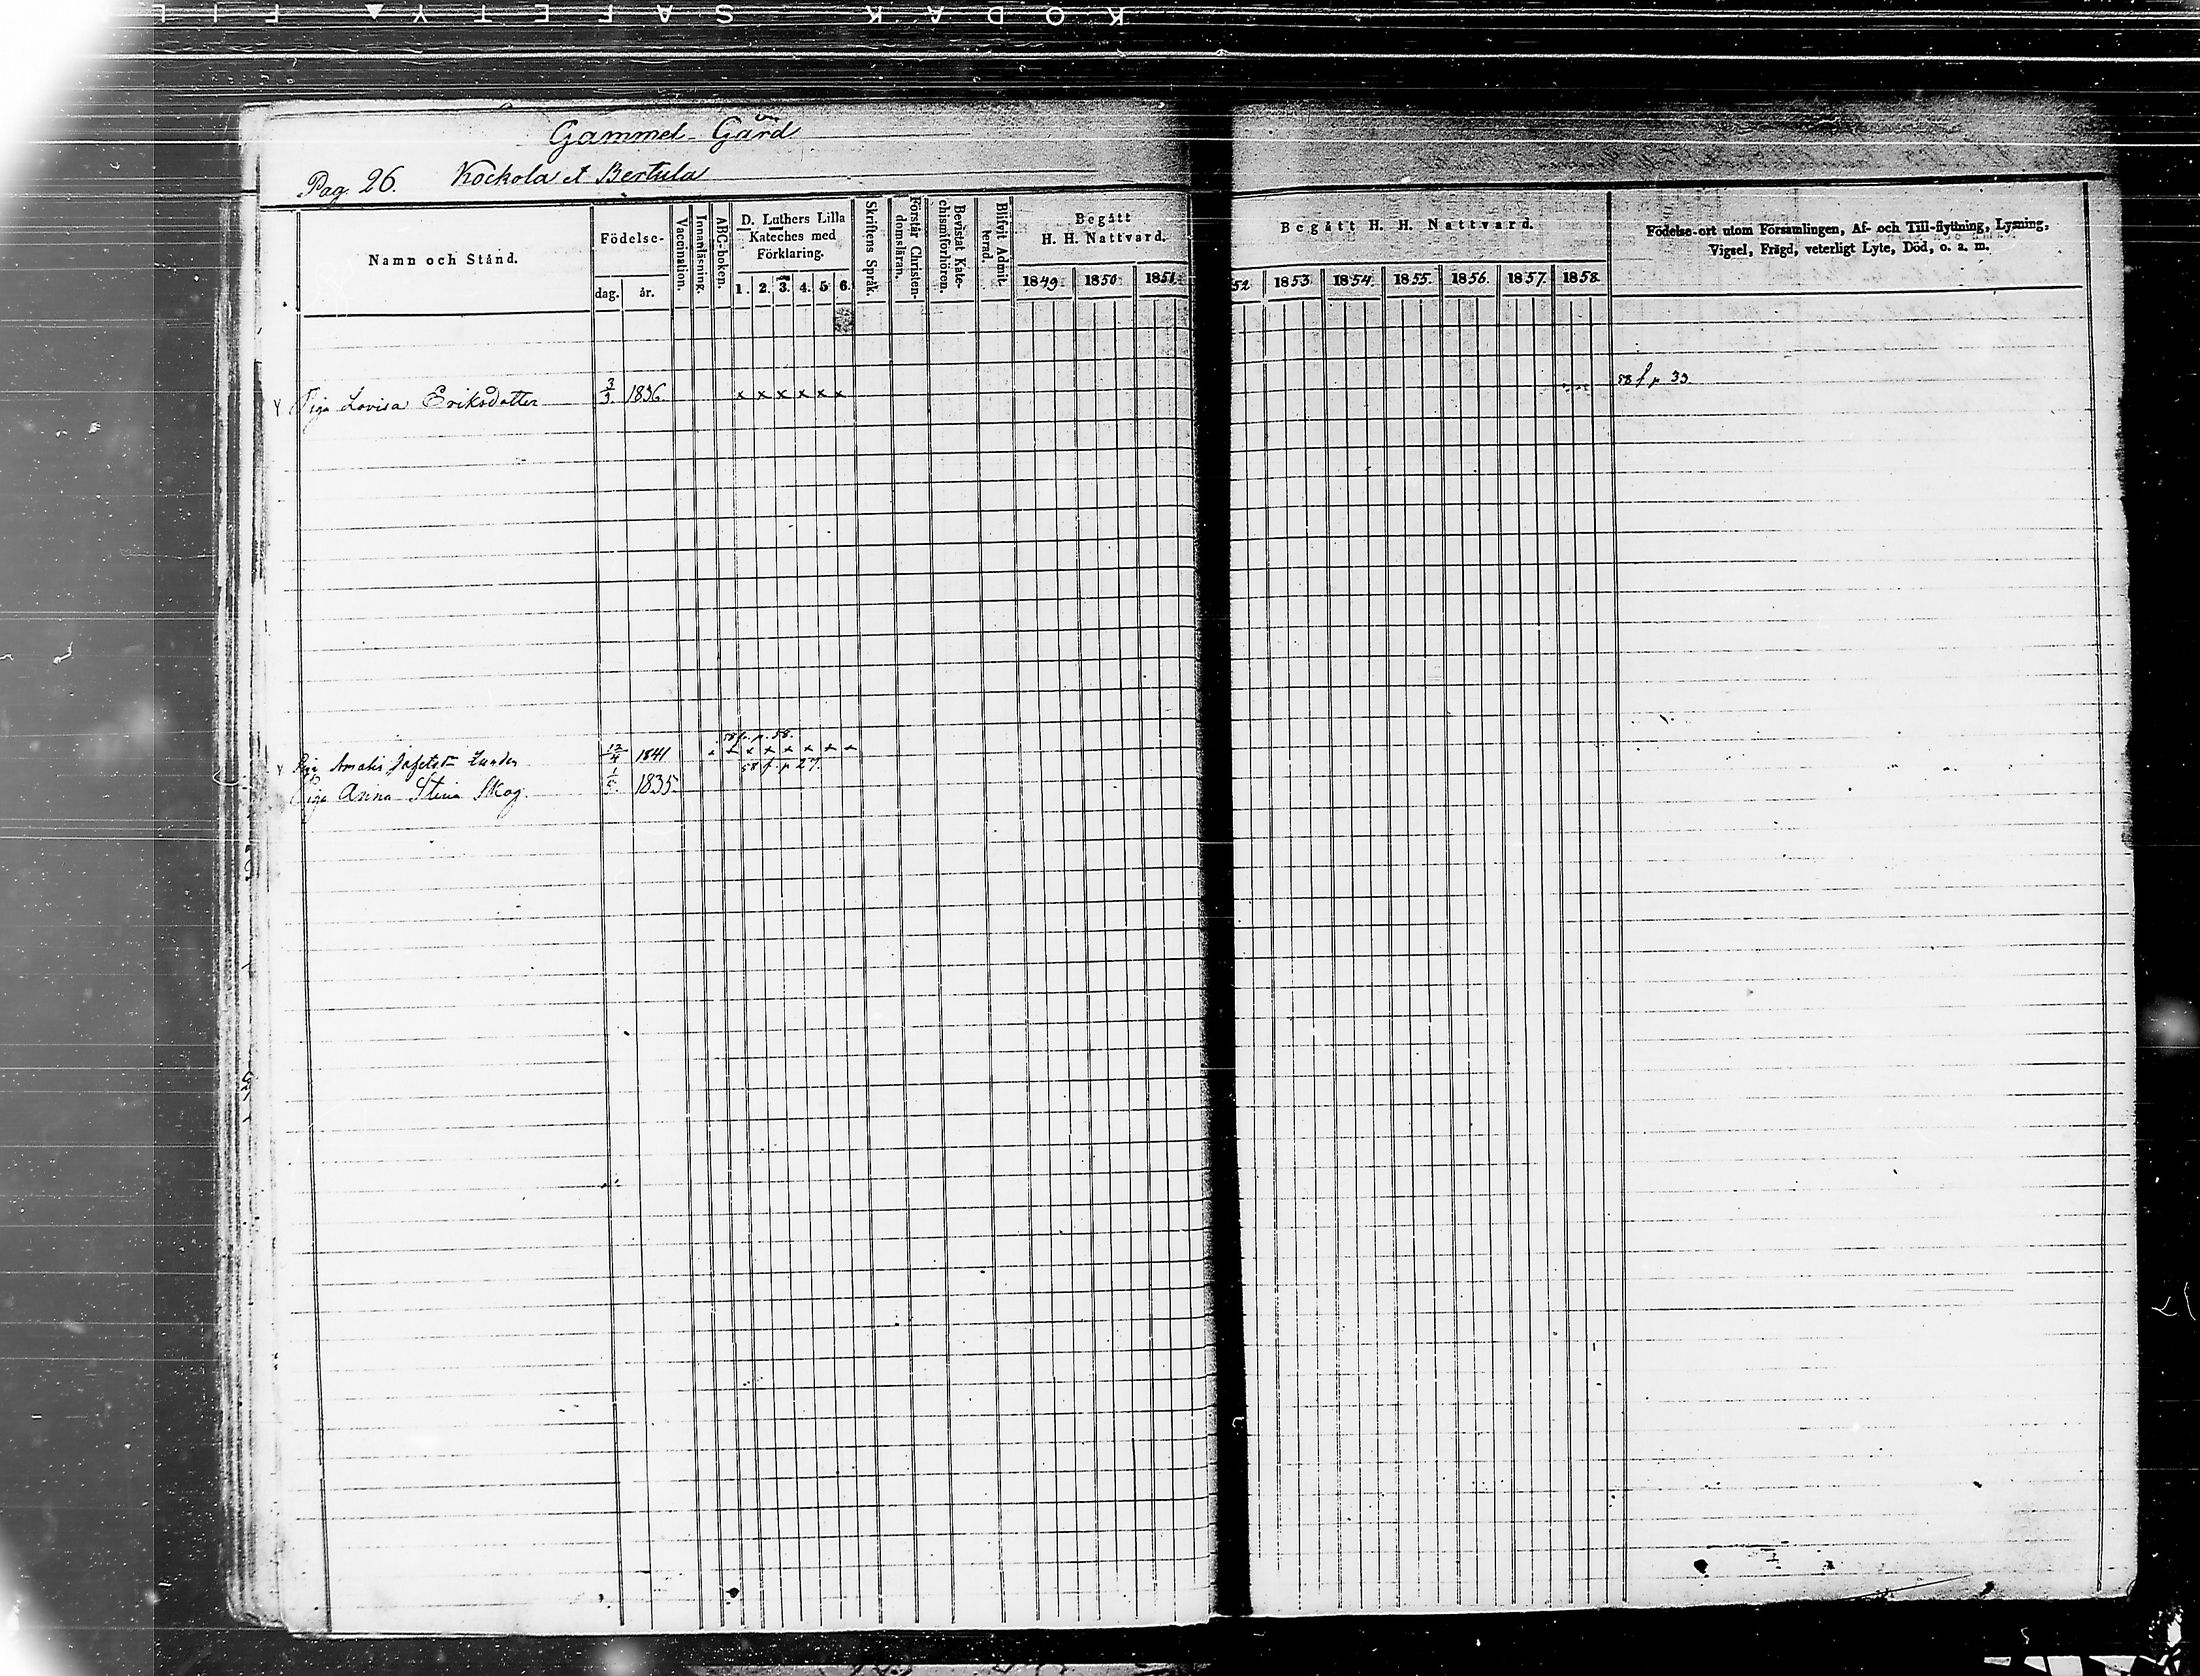 KODAK SAFETY FIL
Gammel Gård
Pag. 26. Kockola et Bertula
Namn och Stånd.
Födelse-
dag. år.
Vaccination.
Innanläsning.
ABC-boken.
D. Luthers Lilla
Kateches med
Förklaring.
1. 2. 3. 4. 5 6.
Skriftens Språk.
Förstår Christen-
domsläran.
Bevistat Kate-
chismiförhören.
Blifvit Admit-
terad.
Begått
H. H. Nattvard.
1849. 1850. 1851.
Begått H. H. Nattvard.
52 1853. 1854. 1855. 1856. 1857. 1858.
Födelse-ort utom Församlingen, Af- och Till-flyttning, Lysning,
Vigsel, Frägd, veterligt Lyte, Död, o. a. m.
Piga Lovisa Eriksdotter 3/3. 1836. x x x x x x 58 f. p 33
58 f. p. 58.
Amalia 12/4 1841 x x x x x x x
58 f. p 27.
Piga Anna Stina Skog. 1/5. 1835.